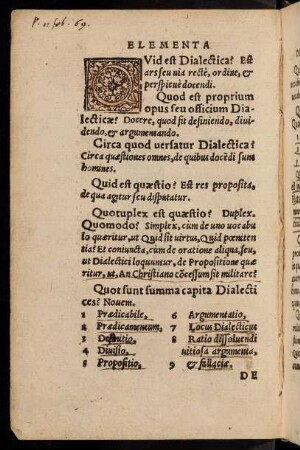 ELEMENTA
Vid est Dialectica? Est
ars seu via rectè, ordine, &
perspicuè docendi.
Quod est proprium
opus seu officium Dia-
lecticæ? Docere, quod sit definiendo, diui-
dendo, & argumentando.
Circa quod uersatur Dialectica?
Circa quæstiones omnes, de quibus docẽdi sunt
homines.
Quid est quæstio? Est res proposita,
de qua agitur seu disputatur.
Quotuplex est quæstio? Duplex.
Quomodo? Simplex, cùm de uno uocabu
lo quæritur, ut Quid sit uirtus, Quid pœniten
tia? Et coniuncta, cùm de oratione aliqua, seu,
ut Dialectici loquuntur, de Propositione quæ
ritur, ut, An Christiano cõcessum sit militare?
Quot sunt summa capita Dialecti
ces? Nouem.
1 Prædicabile,
2 Prædicamentum,
3 Definitio,
4 Diuisio,
5 Propositio,
6 Argumentatio,
7 Locus Dialecticus
8 Ratio dissoluendi
uitiosa argumenta,
9 & fallaciæ.
DE